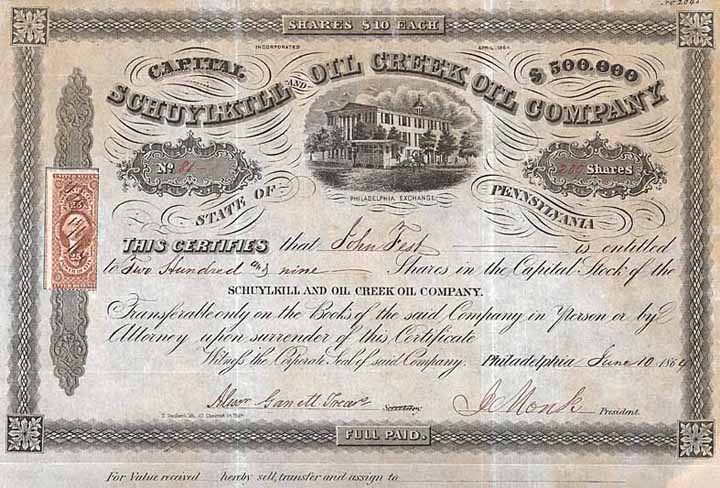 SHARES $10 EACH
INCORPORATED APRIL, 1864
CAPITAL $500,000
SCHUYLKILL AND OIL CREEK OIL COMPANY
No 81 Shares
PHILADELPHIA EXCHANGE
STATE OF PENNSYLVANIA
25 25
THIS CERTIFIES that John Fest is entitled
to Two Hundred and nine Shares in the Capital Stock of the
SCHUYLKILL AND OIL CREEK OIL COMPANY.
Transferable only on the Books of the said Company in Person or by
Attorney upon surrender of this Certificate
Witness the Corporate Seal of said Company. Philadelphia June 10 1864
Garrett Treas Secretary J Monk President.
FULL PAID.
For Value received hereby sell, transfer and assign to